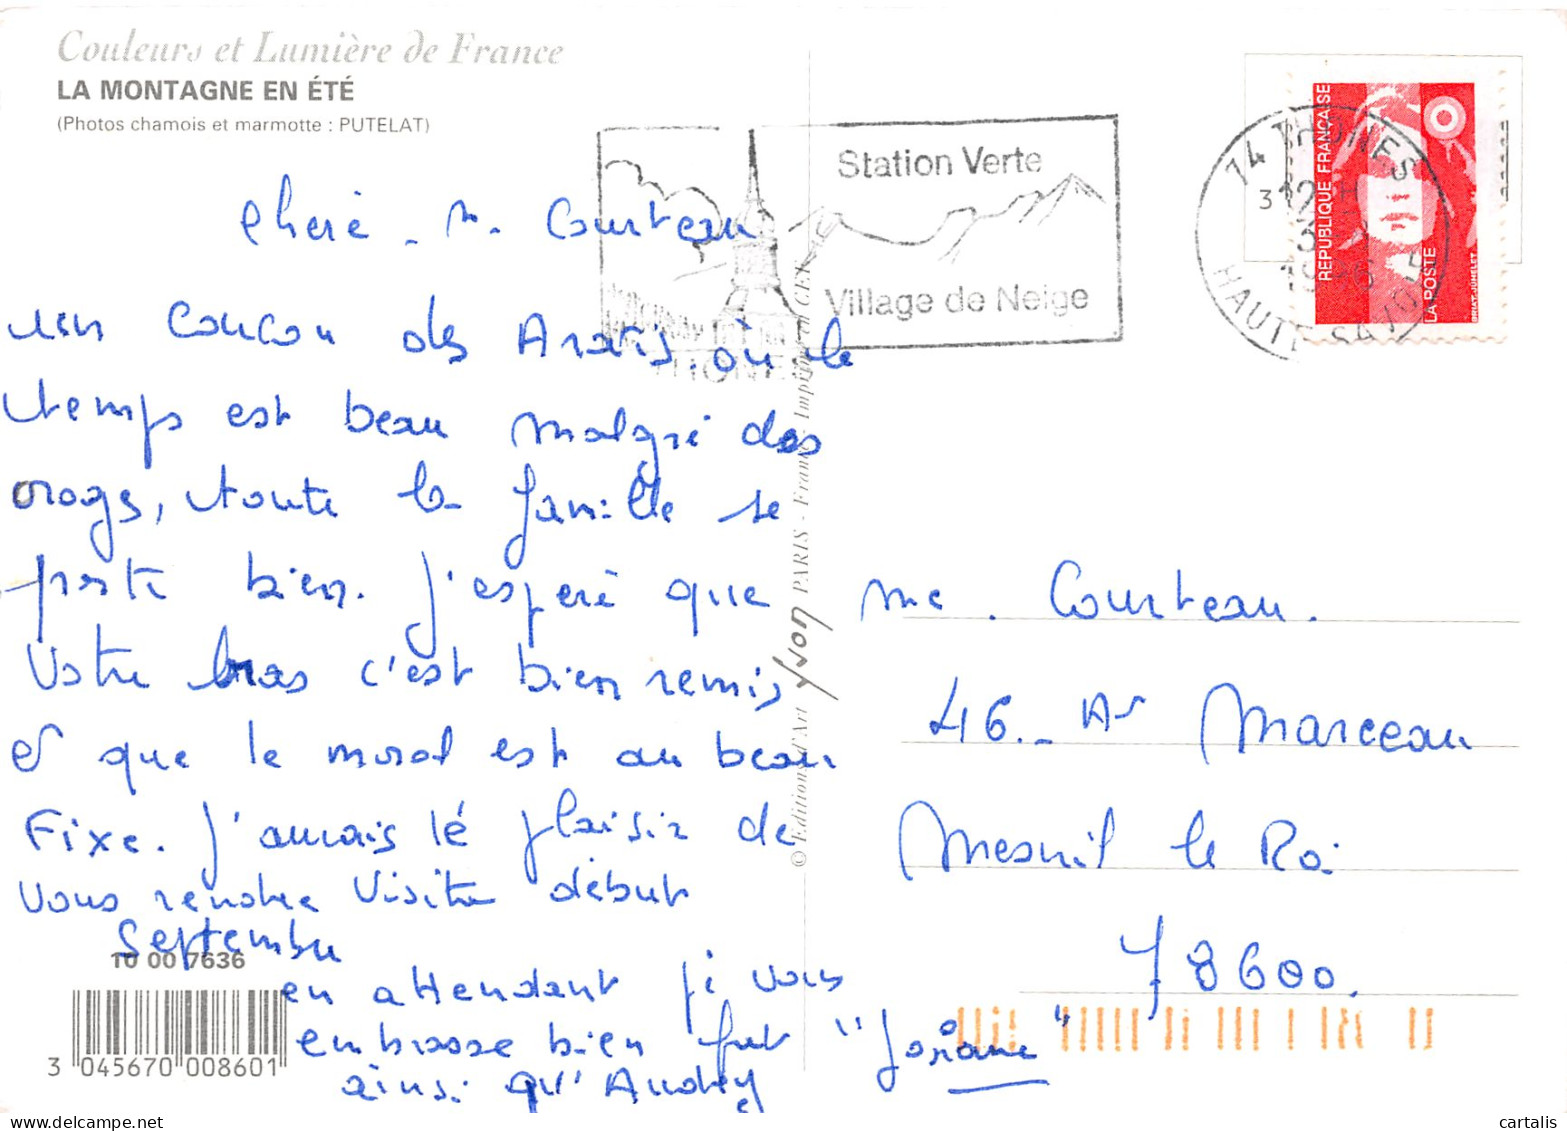 Couleurs et Lumière de France
LA MONTAGNE EN ÉTÉ
(Photos chamois et marmotte : PUTELAT)
Station Verte
Village de Neige
THONES
74 THONES
HAUTE SAVOIE
RÉPUBLIQUE FRANÇAISE
LA POSTE
cheré - M. Courteau
un coucou des Aravis où le
temps est beau malgré des
orages, toute la famille se
porte bien. J'esperè que
Votre bras c'est bien remis
et que le moral est au beau
Fixe. J'aurais lé plaisir de
vous rendre visite début
Septembre
en attendant je vous
embrasse bien fort "Josiane"
ainsi qu'Audrey
10 00 7636
3 045670 008601
© Editions d'Art Yvon PARIS - France - Imprimé en CEE
Me. Courteau.
46 - Av Marceau
Mesnil le Roi
78600.
cartalis.com